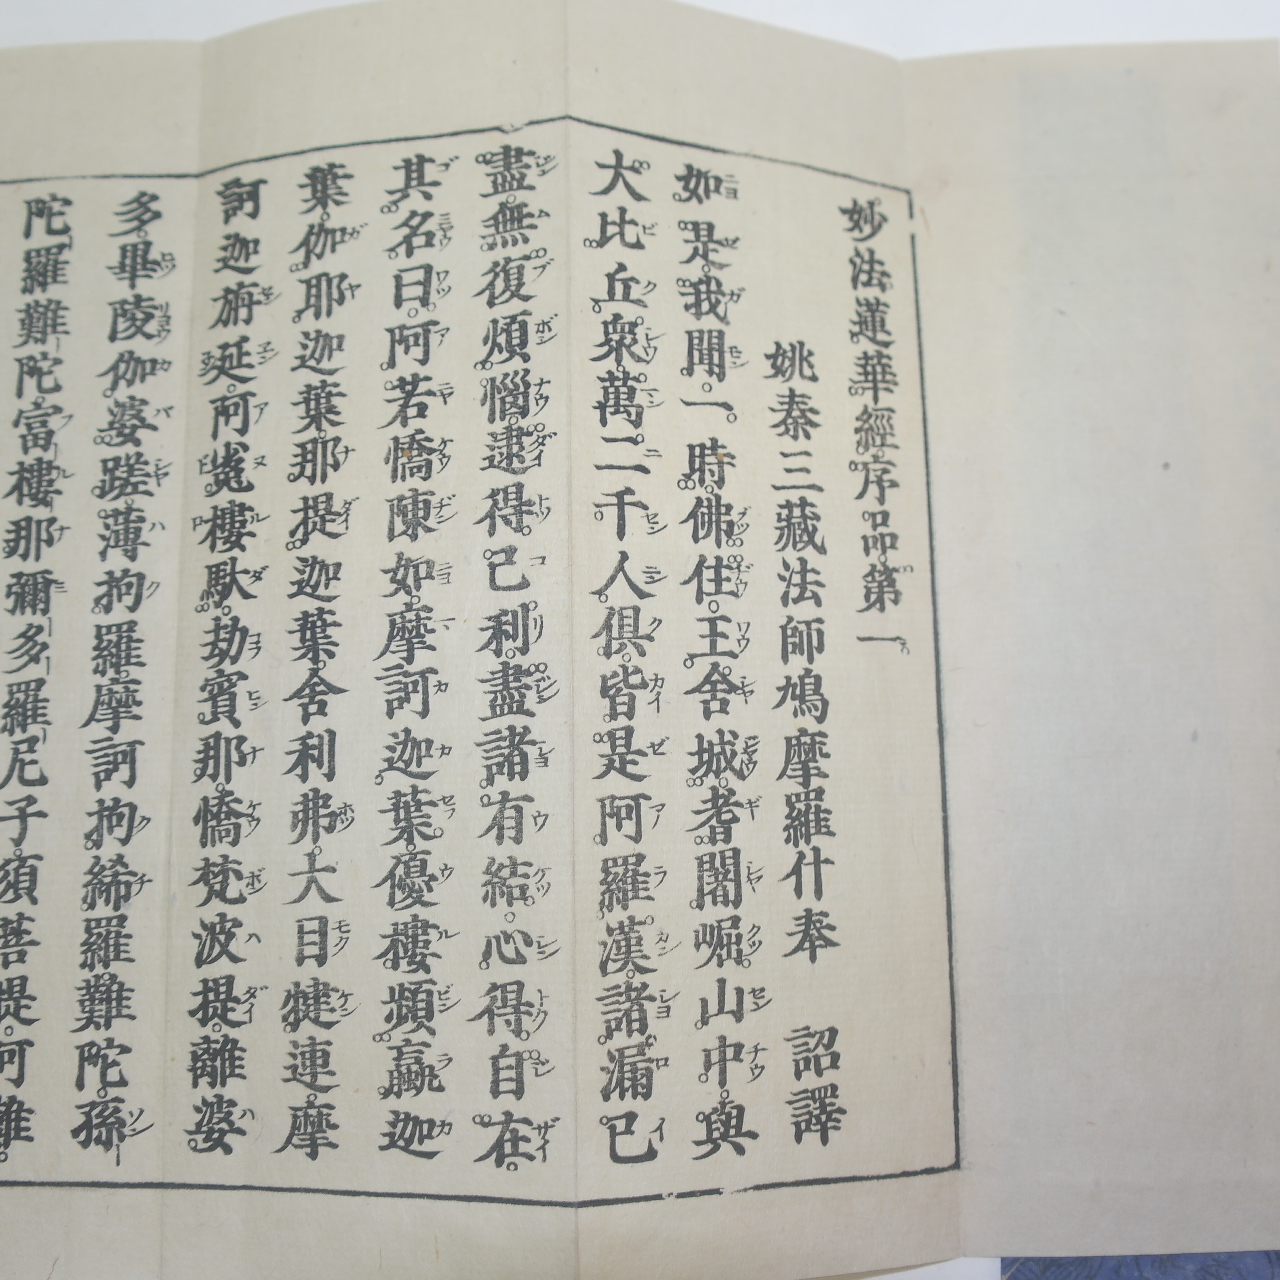 妙法蓮華經序品第一
姚秦三藏法師鳩摩羅什奉 詔譯
如是我聞一時佛住王舍城耆闍崛山中與
大比丘衆萬二千人俱皆是阿羅漢諸漏已
盡無復煩惱逮得己利盡諸有結心得自在
其名曰阿若憍陳如摩訶迦葉優樓頻蠃迦
葉伽耶迦葉那提迦葉舍利弗大目犍連摩
訶迦旃延阿㝹樓馱劫賓那憍梵波提離婆
多畢陵伽婆蹉薄拘羅摩訶拘絺羅難陀孫
陀羅難陀富樓那彌多羅尼子須菩提阿難